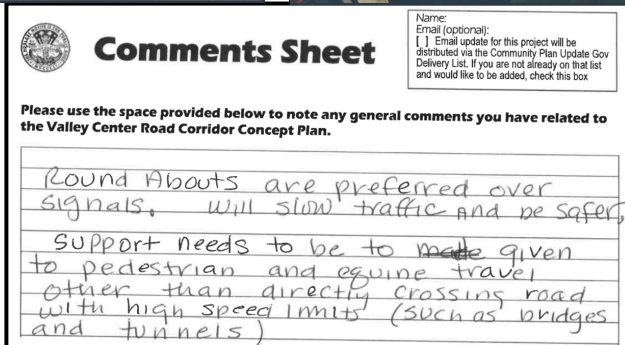 Comments Sheet
Name:
Email (optional):
[ ] Email update for this project will be
distributed via the Community Plan Update Gov
Delivery List. If you are not already on that list
and would like to be added, check this box
Please use the space provided below to note any general comments you have related to
the Valley Center Road Corridor Concept Plan.
Round Abouts are preferred over
signals. Will slow traffic and be safer,
Support needs to be to made given
to pedestrian and equine travel
other than directly crossing road
with high speed limits (such as bridges
and tunnels)